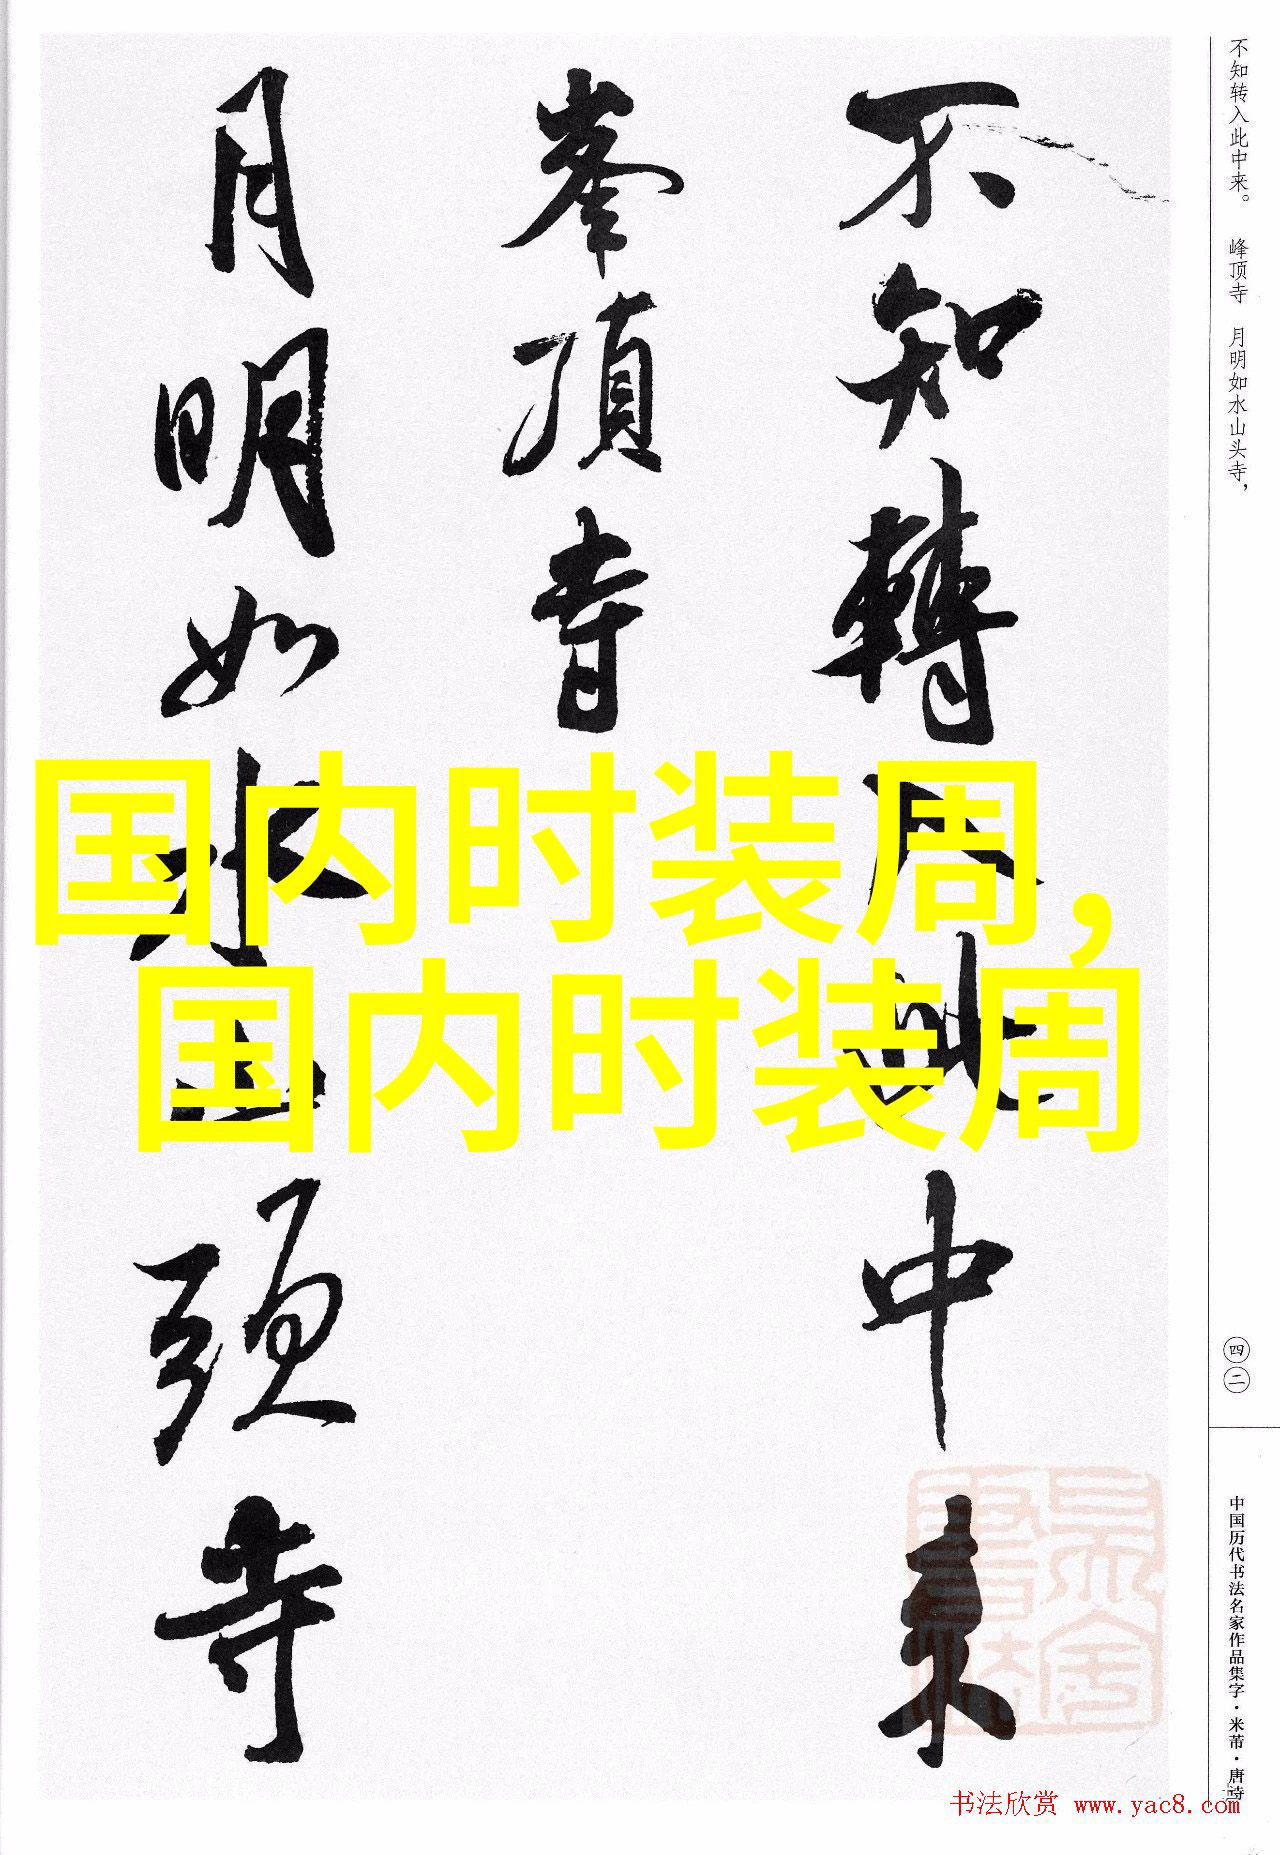 不知转入此中来。 峰顶寺 月明如水山头寺，
不知轉入此中来
峯頂寺
月明如水山頭寺
国内时装周，
国内时装周
四二
中国历代书法名家作品集字·米芾·唐诗
书法欣赏 www.yac8.com